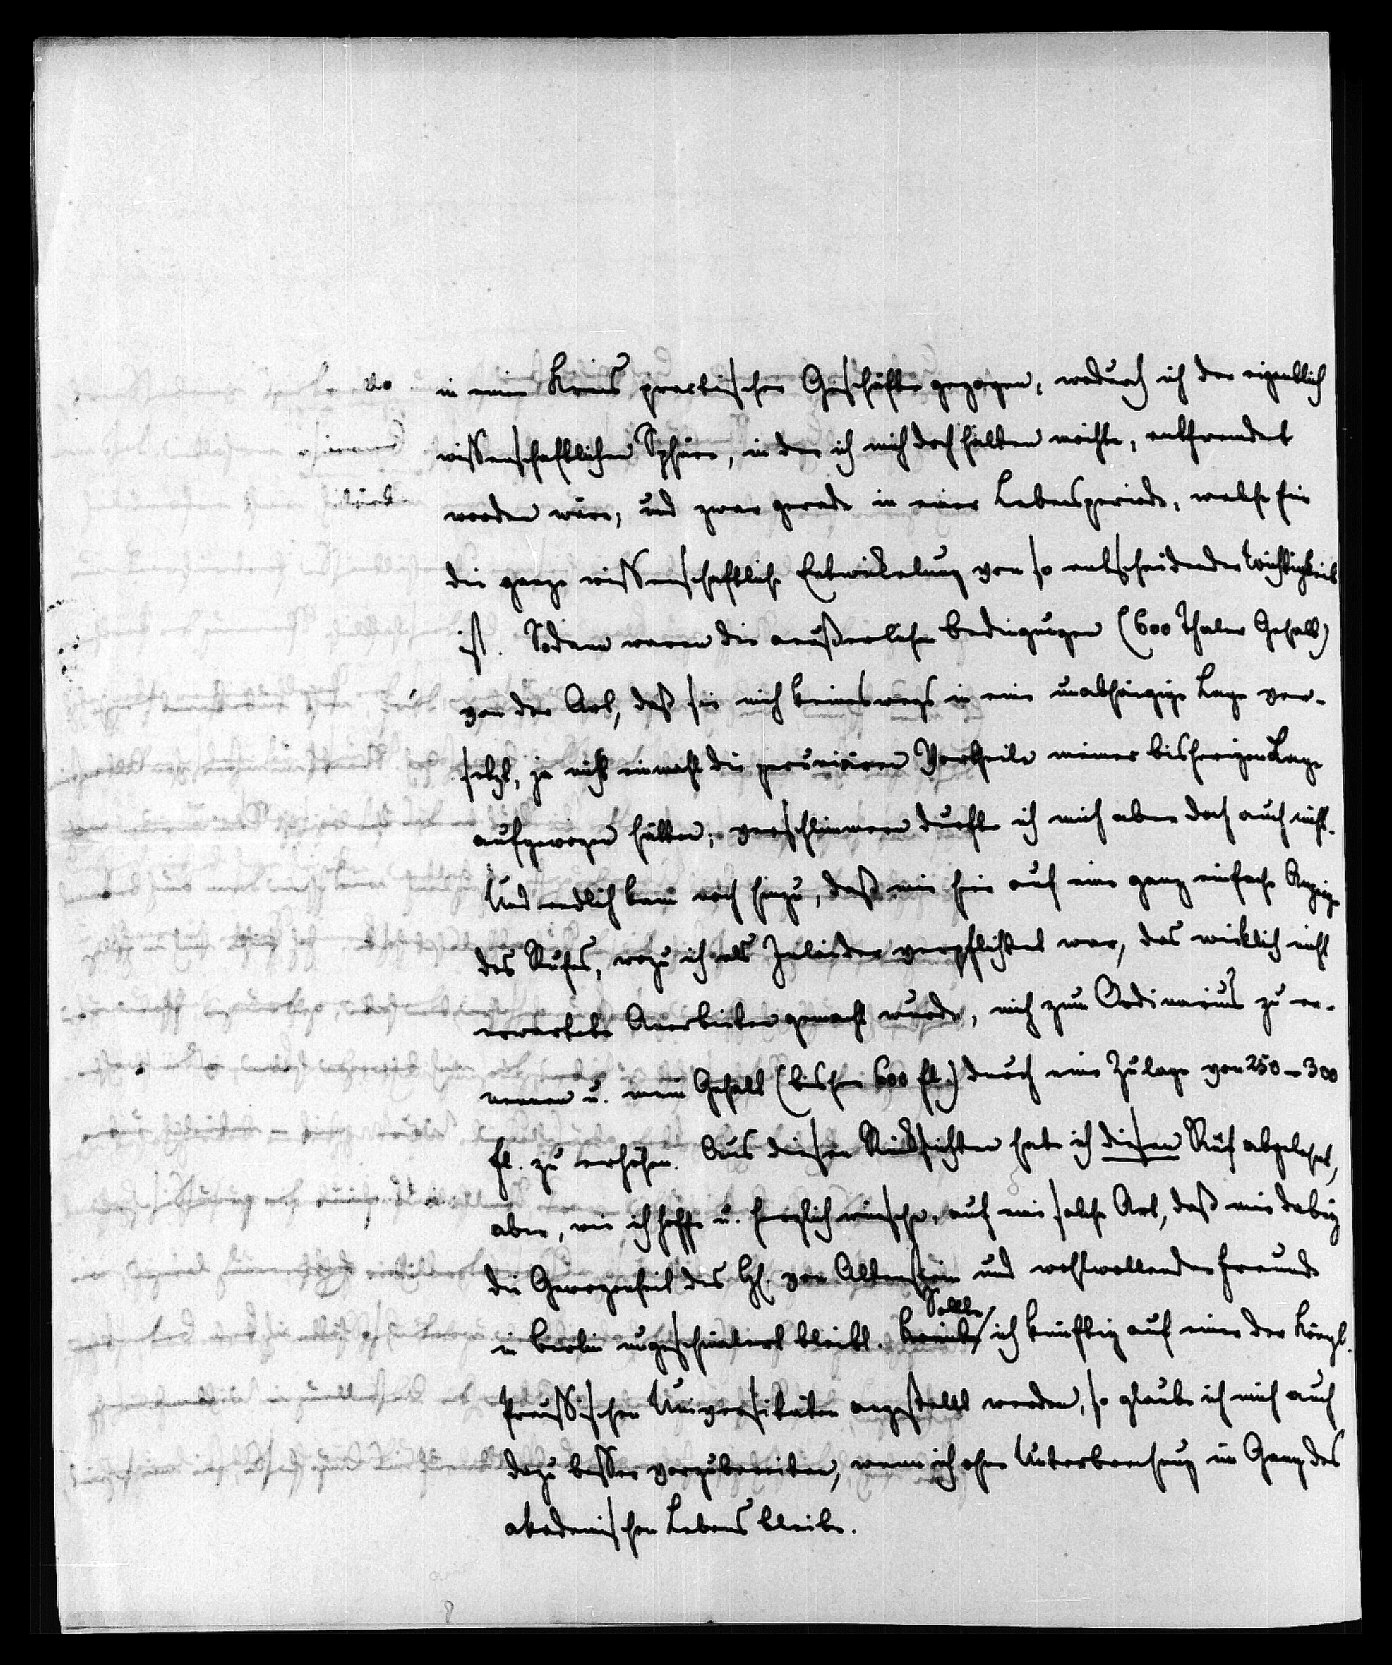 in einen Kreis practischer Geschäfte gezogen, wodurch ich der eigentlich
wissenschaftlichen Sphäre, in der ich mich doch halten möchte, entfremdet
worden wäre, und zwar gerade in einer Lebensperiode, welche für
die ganze wissenschaftliche Entwickelung von so entscheidender Wichtigkeit
ist. Sodann waren die äußerlichen Bedingungen (600 Thaler Gehalt)
von der Art, daß sie mich keineswegs in eine unabhängige Lage ver-
setzt, ja nicht einmal die pecuniären Vortheile meiner bisherigen Lage
aufgewogen hätten; verschlimmern durfte ich mich aber doch auch nicht.
Und endlich kam noch hinzu, daß mir hier auf eine ganz einfache Anzeige
des Rufes, wozu ich als Inländer verpflichtet war, das wirklich nicht
erwartete Anerbieten gemacht wurde, mich zum Ordinarius zu er-
nennen u. mein Gehalt (bisher 600 fl.) durch eine Zulage von 250–300
fl. zu erhöhen. Aus diesen Rücksichten habe ich diesen Ruf abgelehnt,
aber, wie ich hoffe u. herzlich wünsche, auf eine solche Art, daß mir dabey
die Gewogenheit des H. von Altenstein und wohlwollender Freunde
in Berlin ungeschmälert bleibt. Sollte ich künftig auf einer der Königl.
Preussischen Universitäten angestellt werden, so glaube ich mich auch
dazu besser vorzubereiten, wenn ich ohne Unterbrechung im Gang des
akademischen Lebens bleibe.